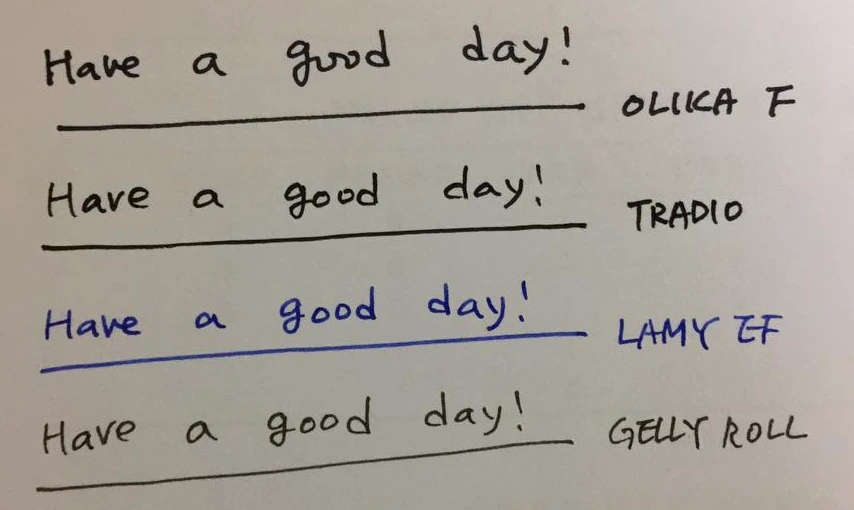 Have a good day!
OLIKA F
Have a good day!
TRADIO
Have a good day!
LAMY EF
Have a good day!
GELLY ROLL